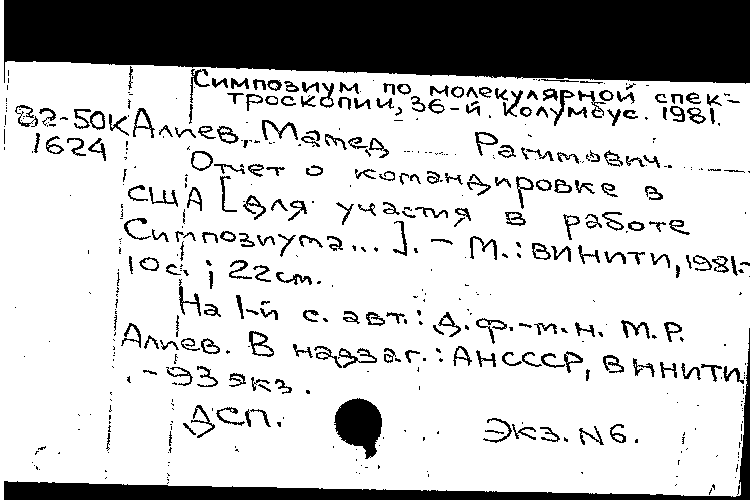 Симпозиум по молекулярной спек-
троскопии, 36-й. Колумбус. 1981.
82-50К Алиев, Мамед Рагимович.
1624
Отчет о командировке в
США [для участия в работе
Симпозиума...]. - М.: ВИНИТИ, 1981.-
10с.; 22см.
На 1-й с. авт.: Д.ф.-м.н. М.Р.
Алиев. В надзаг.: АН СССР, ВИНИТИ
. - 93 экз.
ДСП. Экз. N6.